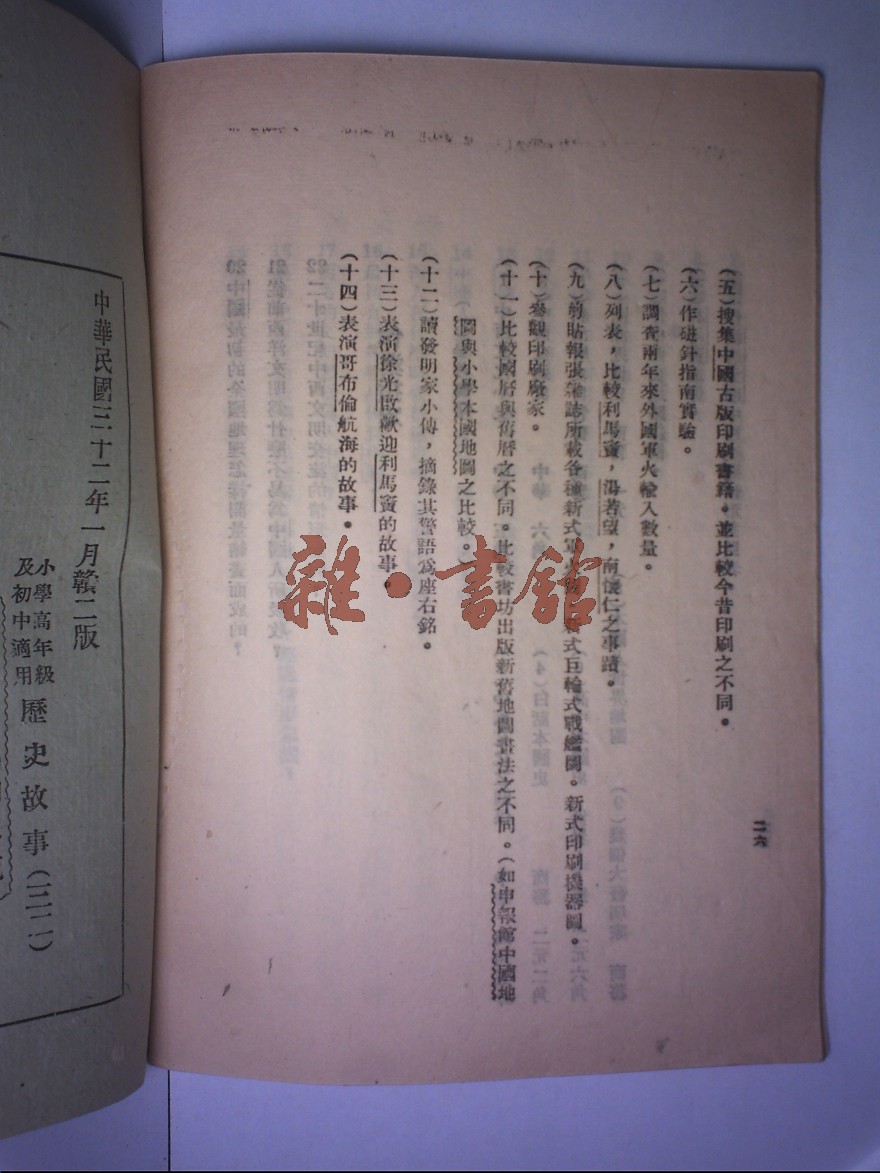 (五)搜集中國古版印刷書籍。並比較今昔印刷之不同。
(六)作磁針指南實驗。
(七)調查兩年來外國軍火輸入數量。
(八)列表,比較利馬竇,湯若望,南懷仁之事蹟。
(九)剪貼報張雜誌所載各種新式軍火圖。新式巨輪式戰艦圖。新式印刷機器圖。
(十)參觀印刷廠家。
(十一)比較國曆與舊曆之不同。比較書坊出版新舊地圖畫法之不同。(如申報館中國地
圖與小學本國地圖之比較。)
(十二)讀發明家小傳,摘錄其警語爲座右銘。
(十三)表演徐光啟歡迎利馬竇的故事。
(十四)表演哥布倫航海的故事。
二六
中華民國三十二年一月贛二版
小學高年級
及初中適用
歷史故事(一二三)
雜·書館